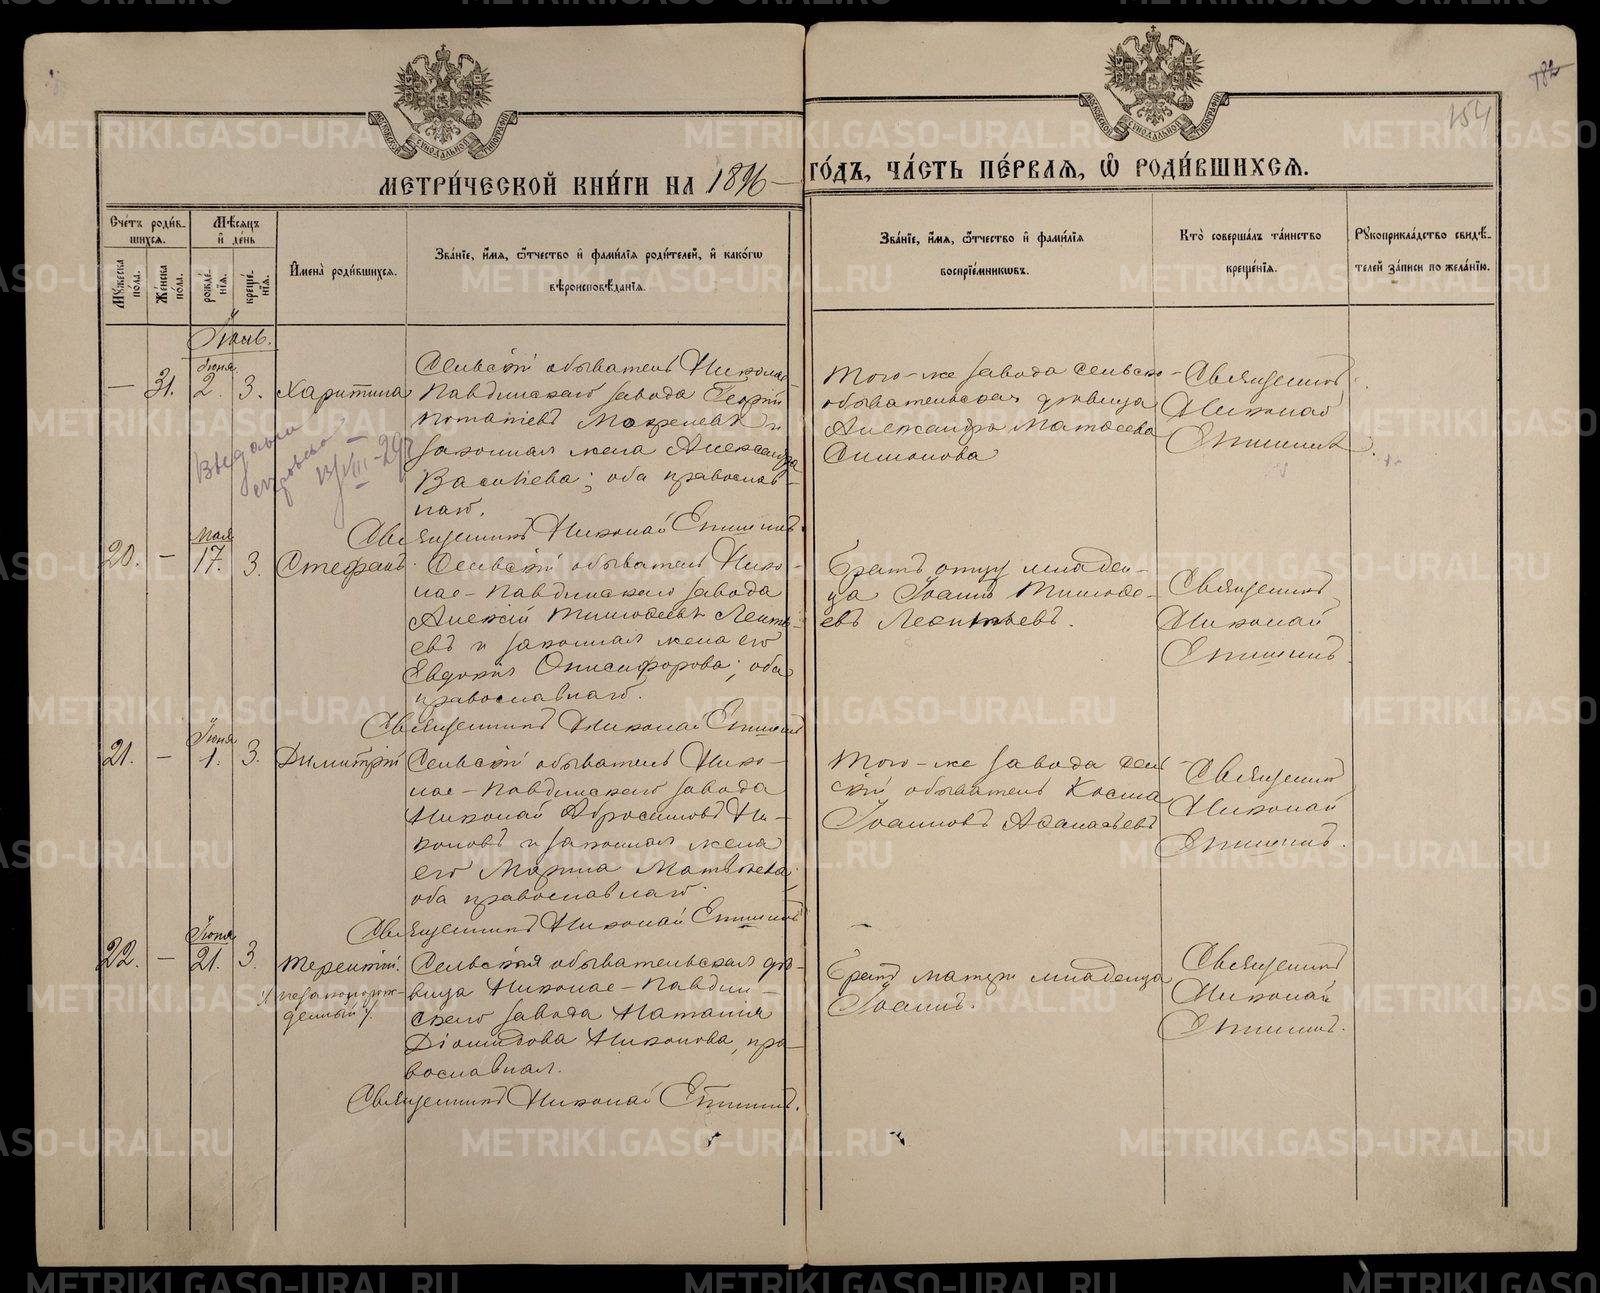 182
154
МЕТРИ́ЧЕСКОЙ КНИ́ГИ НА 1896 ГО́ДЪ, ЧА́СТЬ ПЕ́РВАЯ, Ѿ РОДИ́ВШИХСЯ.
Сче́тъ роди́в-
шихся.
Мѣсяцъ
и҆ де́нь
Мꙋжеска по́ла.
Же́нска по́ла.
рожде́нїя.
креще́нїя.
И҆мена̀ роди́вшихся.
Зва́нїе, и҆́мя, ѻ҆́тчество и҆ фами́лїя роди́телей, и҆ како́гѡ
вѣроисповѣ́данїя.
Зва́нїе, и҆́мя, ѻ҆́тчество и҆ фами́лїя
воспрїе́мникѡвъ.
Кто̀ соверша́лъ та́инство
креще́нїя.
Рꙋкоприкла́дство свидѣ́-
телей за́писи по жела́нїю.
Іюнь.
— 31. Іюня 2. 3. Харитина
Сельскій обыватель Николае-
Павдинскаго завода Георгій
Потапіевъ Мокрецевъ и
законная жена Александра
Васильева; оба православ-
наго.
Священникъ Николай Епишинъ.
Того-же завода сельско-
обывательская дѣвица
Александра Матѳеева
Симонова
Священникъ
Николай
Епишинъ.
Выдана
13/VIII-29
20. — Мая 17. 3. Стефанъ.
Сельскій обыватель Нико-
лае-Павдинскаго завода
Алексій Тимоѳеевъ Леонть-
евъ и законная жена его
Евдокія Онисифорова; оба
православнаго.
Священникъ Николай Епишинъ
Братъ отцу младен-
ца Іоаннъ Тимоѳе-
евъ Леонтьевъ.
Священникъ
Николай
Епишинъ.
21. — Іюня 1. 3. Димитрій
Сельскій обыватель Нико-
лае-Павдинскаго завода
Николай Абросимовъ Ни-
коновъ и законная жена
его Марина Матвѣева
оба православнаго.
Священникъ Николай Епишинъ
Того-же завода сель-
скій обыватель Косма
Іоанновъ Аѳанасьевъ
Священникъ
Николай
Епишинъ.
22. — Іюня 21. 3. Терентій.
незаконорож-
денный
Сельская обывательская дѣ-
вица Николае-Павдин-
скаго завода Наталія
Діомидова Никонова, пра-
вославная.
Священникъ Николай Епишинъ.
Братъ матери младенца
Іоаннъ.
Священникъ
Николай
Епишинъ.
METRIKI.GASO-URAL.RU